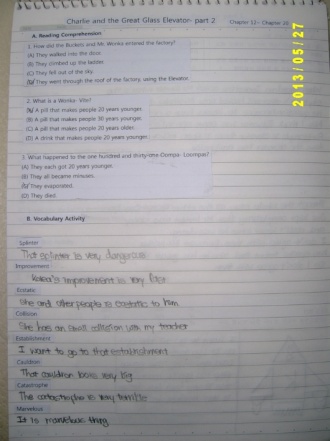 Charlie and the Great Glass Elevator- part 2 Chapter 12~ Chapter 20
A. Reading Comprehension
1. How did the Buckets and Mr. Wonka entered the factory?
(A) They walked into the door.
(B) They climbed up the ladder.
(C) They fell out of the sky.
(D) They went through the roof of the factory, using the Elevator.
2. What is a Wonka- Vite?
(A) A pill that makes people 20 years younger.
(B) A pill that makes people 30 years younger.
(C) A pill that makes people 20 years older.
(D) A drink that makes people 20 years younger.
3. What happened to the one hundred and thirty-one Oompa- Loompas?
(A) They each got 20 years younger.
(B) They all became minuses.
(C) They evaporated.
(D) They died.
B. Vocabulary Activity
Splinter
That splinter is very dangerous
Improvement
Korea's improvement is very
Ecstatic
She and other people is ecstatic to him
Collision
She has an small collision with my teacher
Establishment
I want to go to that establishment
Cauldron
That cauldron looks very big
Catastrophe
The catastrophe is very terrible
Marvelous
It is marvelous thing
2013/05/27